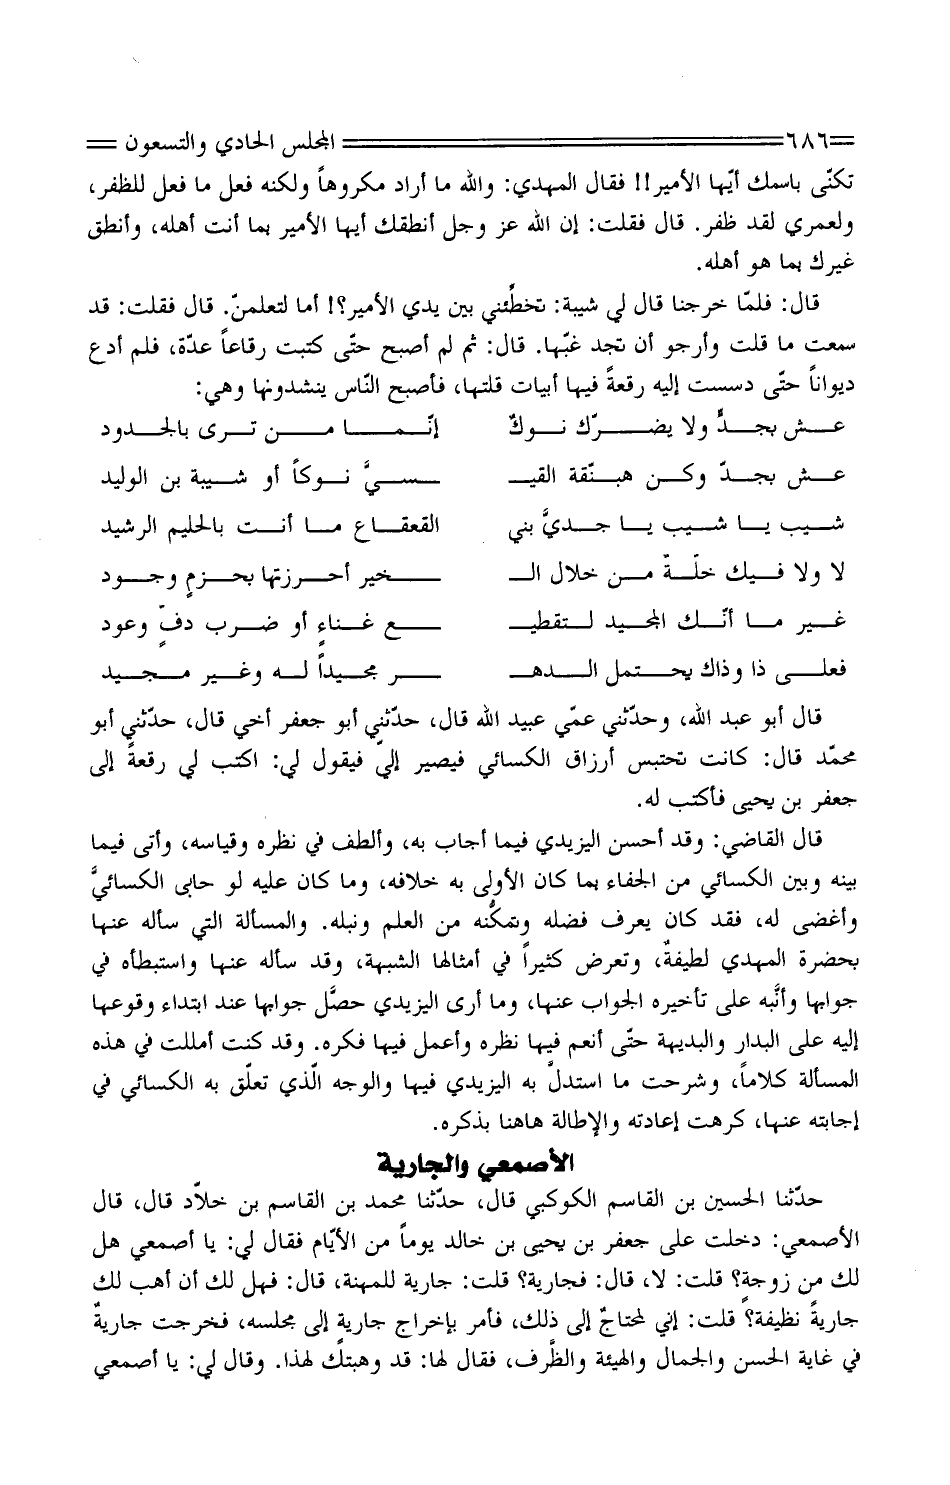 ٦٨٦ المجلس الحادي والتسعون
تكنّى باسمك أيّها الأمير!! فقال المهدي: والله ما أراد مكروهاً ولكنه فعل ما فعل للظفر،
ولعمري لقد ظفر. قال فقلت: إن الله عز وجل أنطقك أيها الأمير بما أنت أهله، وأنطق
غيرك بما هو أهله.
قال: فلمّا خرجنا قال لي شيبة: تخطِّئني بين يدي الأمير؟! أما لتعلمنّ. قال فقلت: قد
سمعت ما قلت وأرجو أن تجد غبّها. قال: ثم لم أصبح حتّى كتبت رقاعاً عدّة، فلم أدع
ديواناً حتّى دسست إليه رقعةً فيها أبيات قلتها، فأصبح النّاس ينشدونها وهي:
عــش بجــدٍّ ولا يضــرّك نــوكٌ إنّمــا مــن تــرى بالجــدود
عــش بجــدّ وكــن هبنّقة القيـ ـسيَّ نــوكاً أو شــيبة بن الوليد
شــيب يــا شــيب يــا جــديَّ بني القعقــاع مــا أنــت بالحليم الرشيد
لا ولا فــيك خلّــةٌ مــن خلال الـ ـخير أحــرزتها بحــزمٍ وجــود
غــير مــا أنّــك المجــيد لــتقطيـ ـع غــناءٍ أو ضــرب دفٍّ وعود
فعلــى ذا وذاك يحــتمل الــدهـ ـر مجــيداً لــه وغــير مــجيد
قال أبو عبد الله، وحدّثني عمّي عبيد الله قال، حدّثني أبو جعفر أخي قال، حدّثني أبو
محمّد قال: كانت تحتبس أرزاق الكسائي فيصير إليّ فيقول لي: اكتب لي رقعةً إلى
جعفر بن يحيى فأكتب له.
قال القاضي: وقد أحسن اليزيدي فيما أجاب به، وألطف في نظره وقياسه، وأتى فيما
بينه وبين الكسائي من الجفاء بما كان الأولى به خلافه، وما كان عليه لو حابى الكسائيَّ
وأغضى له، فقد كان يعرف فضله وتمكّنه من العلم ونبله. والمسألة التي سأله عنها
بحضرة المهدي لطيفةٌ، وتعرض كثيراً في أمثالها الشبهة، وقد سأله عنها واستبطأه في
جوابها وأنَّبه على تأخيره الجواب عنها، وما أرى اليزيدي حصَّل جوابها عند ابتداء وقوعها
إليه على البدار والبديهة حتّى أنعم فيها نظره وأعمل فيها فكره. وقد كنت أمللت في هذه
المسألة كلاماً، وشرحت ما استدلَّ به اليزيدي فيها والوجه الّذي تعلّق به الكسائي في
إجابته عنها، كرهت إعادته والإطالة هاهنا بذكره.
الأصمعي والجارية
حدّثنا الحسين بن القاسم الكوكبي قال، حدّثنا محمد بن القاسم بن خلّاد قال، قال
الأصمعي: دخلت على جعفر بن يحيى بن خالد يوماً من الأيّام فقال لي: يا أصمعي هل
لك من زوجة؟ قلت: لا، قال: فجارية؟ قلت: جارية للمهنة، قال: فهل لك أن أهب لك
جاريةً نظيفة؟ قلت: إني لمحتاجٌ إلى ذلك، فأمر بإخراج جاريةٍ إلى مجلسه، فخرجت جاريةٌ
في غاية الحسن والجمال والهيئة والظَّرف، فقال لها: قد وهبتك لهذا. وقال لي: يا أصمعي